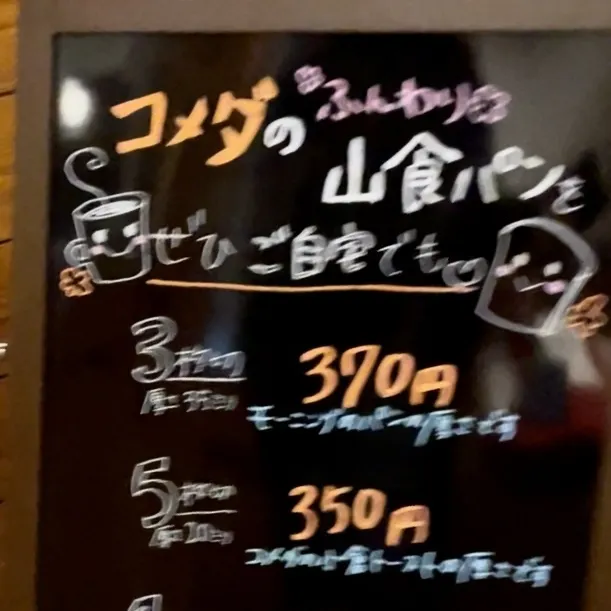 コメダの ふんわり
山食パンを
ぜひご自宅でも♡
3枚切 370円
モーニングのパンの厚さです
5枚切 350円
トーストの厚さです